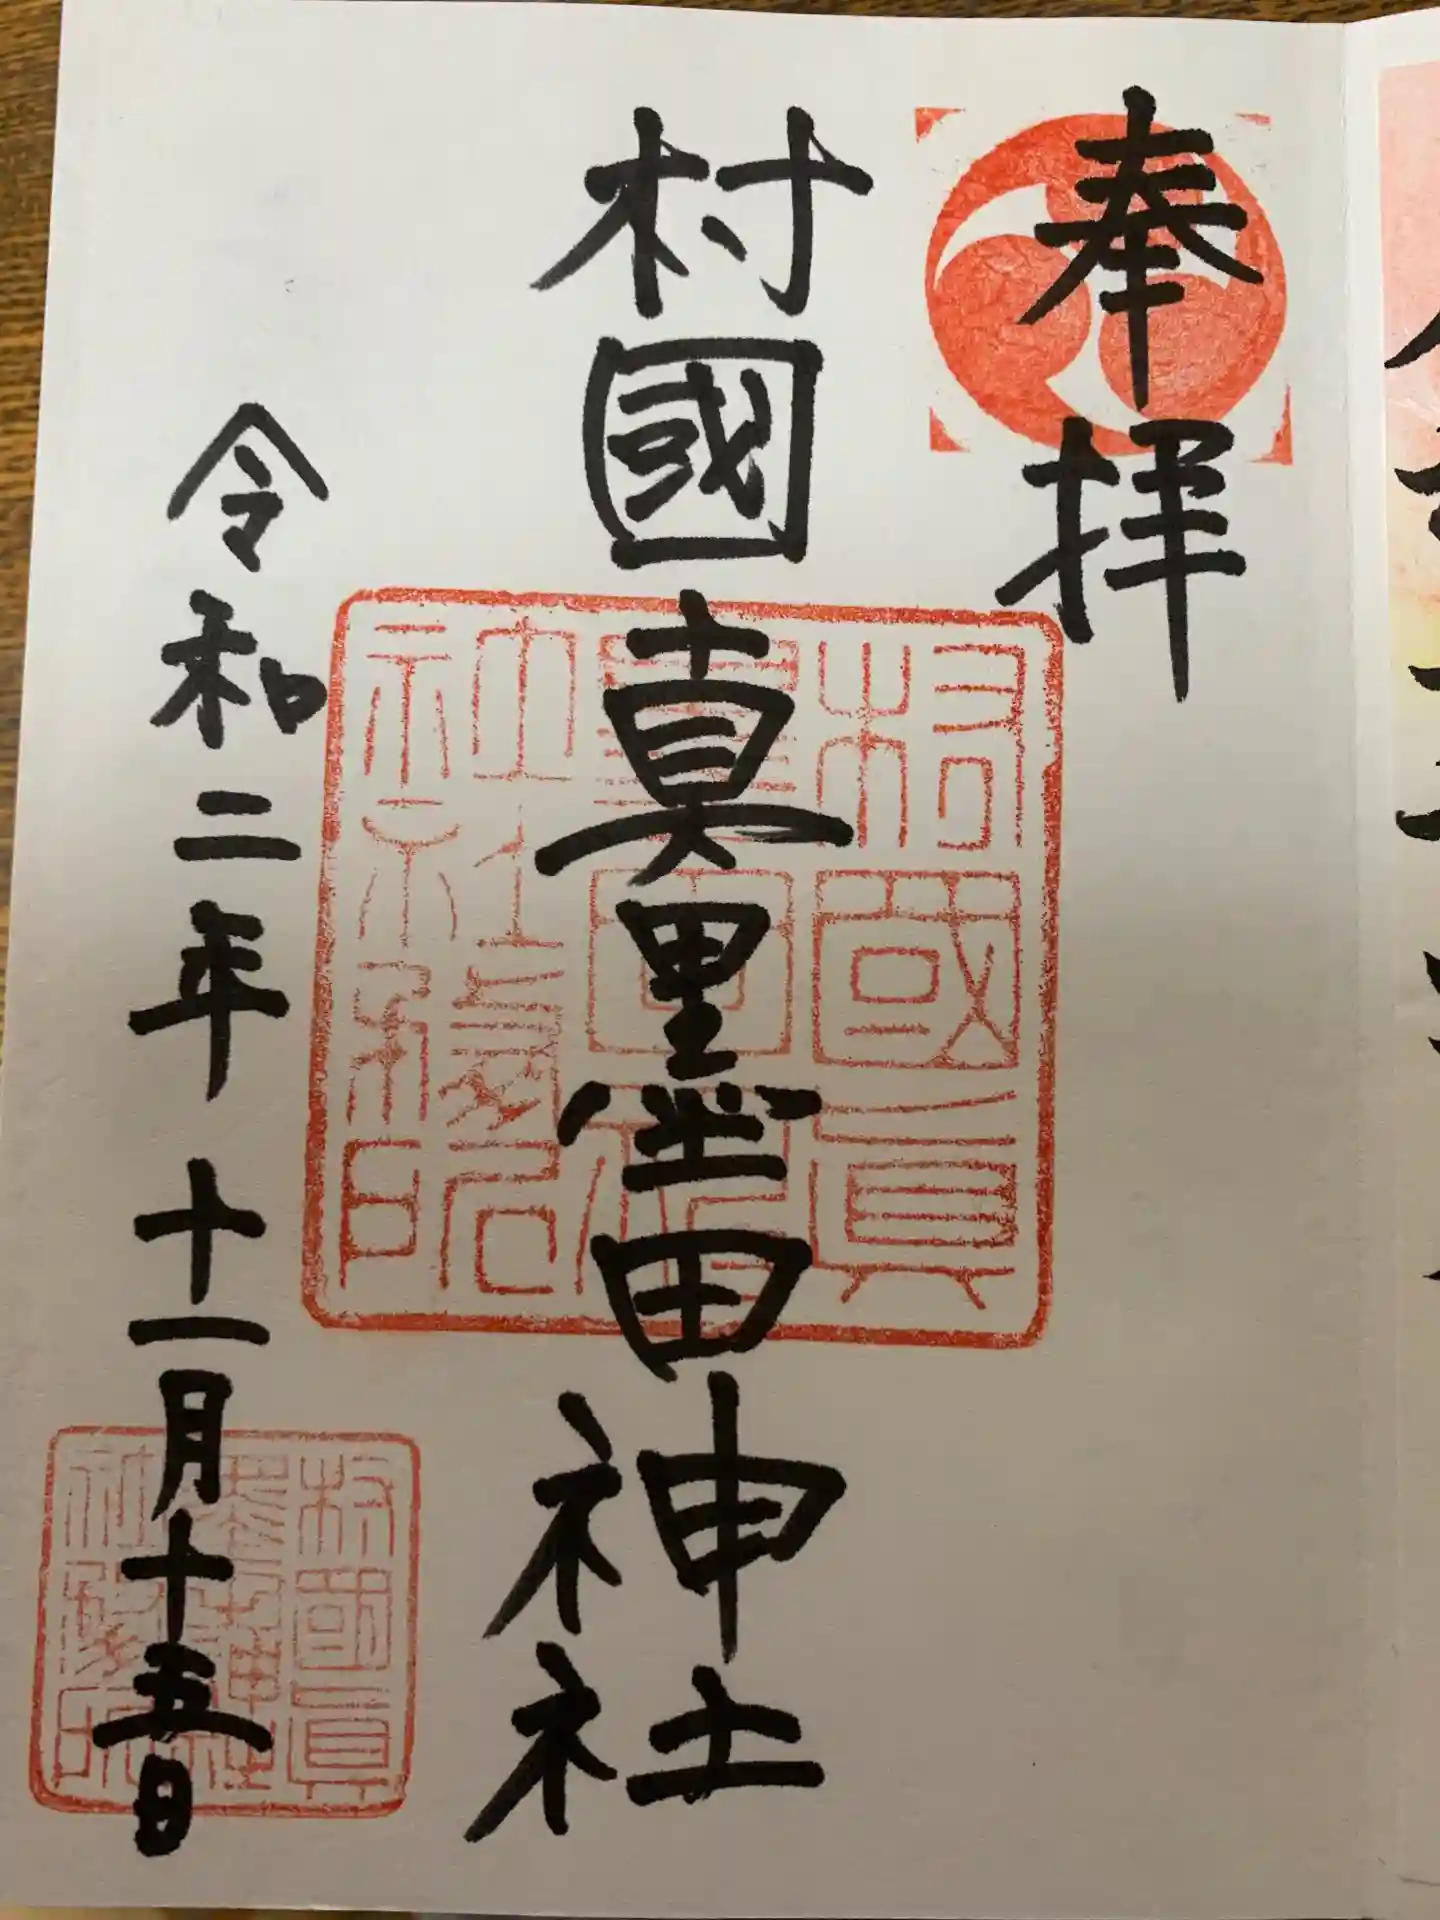 奉拝
村國真墨田神社
令和二年十一月十五日
村國真墨田神社務所
村國真墨田神社務所